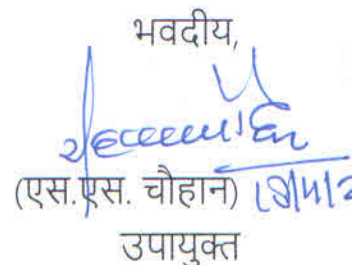 भवदीय,
(एस.एस. चौहान)
उपायुक्त